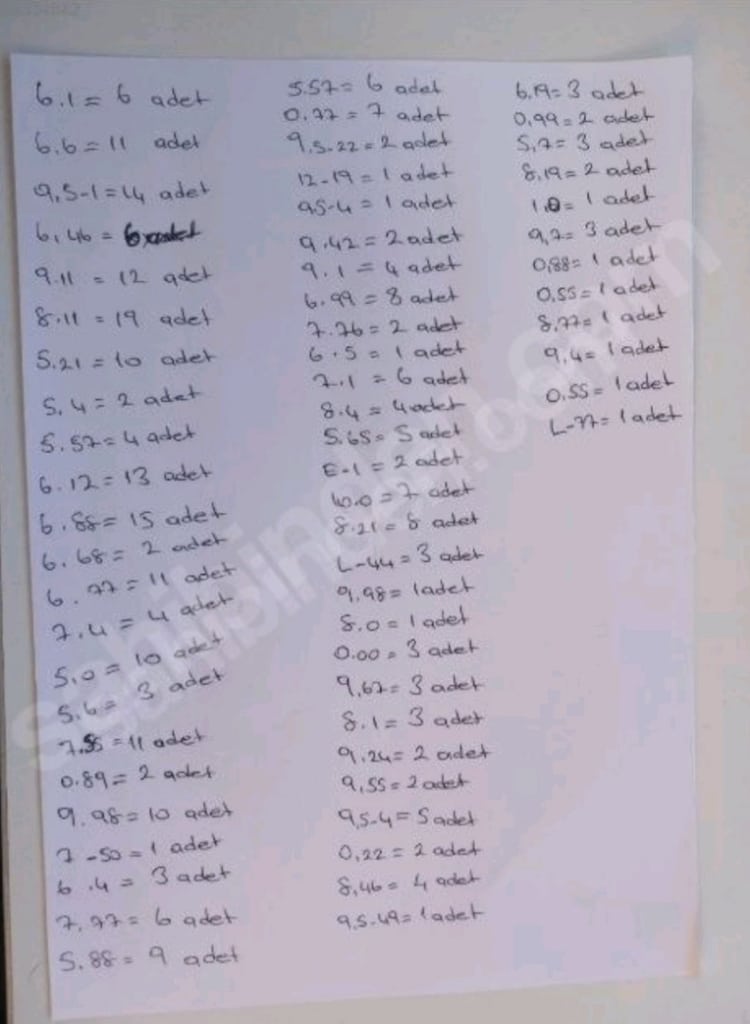 6.1 = 6 adet
6.6 = 11 adet
9,5-1 = 14 adet
6,46 = 6 adet
9.11 = 12 adet
8.11 = 19 adet
5.21 = 10 adet
5,4 = 2 adet
5.57 = 4 adet
6.12 = 13 adet
6.88 = 15 adet
6.68 = 2 adet
6.77 = 11 adet
7.4 = 4 adet
5.0 = 10 adet
5.6 = 3 adet
7.55 = 11 adet
0.89 = 2 adet
9.98 = 10 adet
7-50 = 1 adet
6.4 = 3 adet
7.77 = 6 adet
5.88 = 9 adet
5.57 = 6 adet
0.77 = 7 adet
9,5-22 = 2 adet
12-19 = 1 adet
9.5-4 = 1 adet
9.42 = 2 adet
9.1 = 4 adet
6.99 = 8 adet
7.76 = 2 adet
6.5 = 1 adet
7.1 = 6 adet
8.4 = 4 adet
5.65 = 5 adet
E-1 = 2 adet
10.0 = 7 adet
8.21 = 8 adet
L-44 = 3 adet
9,98 = 1 adet
8.0 = 1 adet
0.00 = 3 adet
9,67 = 3 adet
8.1 = 3 adet
9.24 = 2 adet
9,55 = 2 adet
9,5-4 = 5 adet
0,22 = 2 adet
8,46 = 4 adet
9,5-49 = 1 adet
6.19 = 3 adet
0,99 = 2 adet
5,7 = 3 adet
8,19 = 2 adet
1.0 = 1 adet
9,7 = 3 adet
0,88 = 1 adet
0,55 = 1 adet
8,77 = 1 adet
9,4 = 1 adet
0,55 = 1 adet
L-77 = 1 adet
sahibinden.com